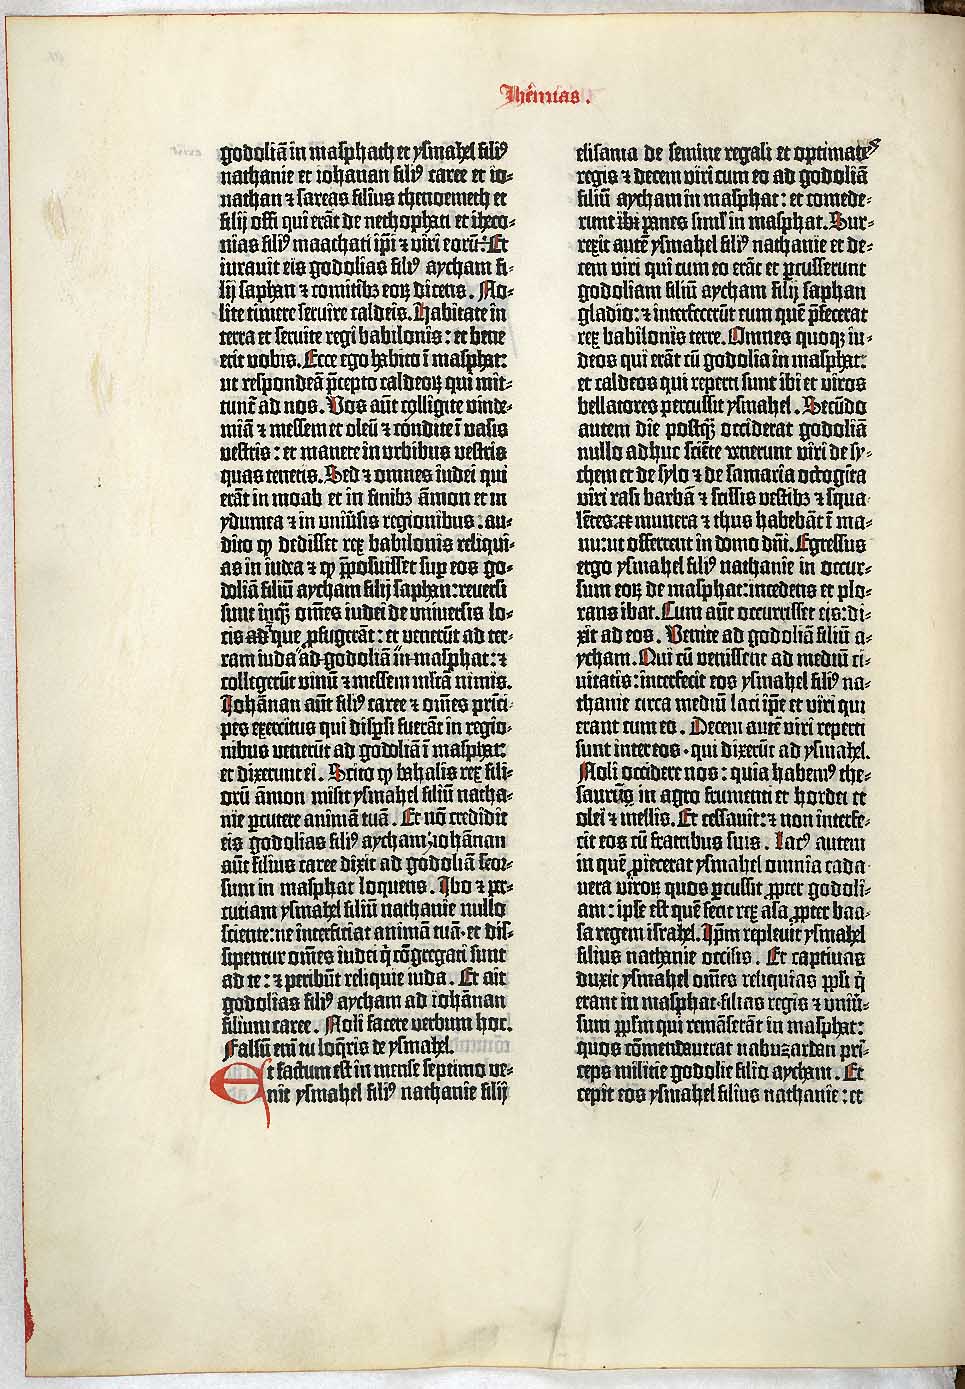 Jhe̅mias.
godoliā in masphath et ysmahel filiꝰ
nathanie et iohanan filiꝰ caree et io-
nathan ⁊ sareas filius thenoemeth et
filij offi qui erāt de nethophati et iheco-
nias filiꝰ maachati ip̄i ⁊ viri eorū. Et
iurauit eis godolias filiꝰ aycham fi-
lij saphan ⁊ comitibꝫ eoꝝ dicens. No-
lite timere seruire caldeis. Habitate in
terra et seruite regi babilonis: et bene
erit vobis. Ecce ego habito ī masphat:
ut respondeā p̄cepto caldeoꝝ qui mit-
tunt̄ ad nos. Vos aūt colligite vinde-
miā ⁊ messem et oleū ⁊ condite ī vasis
vestris: et manete in vrbibus vestris
quas tenetis. Sed ⁊ omnes iudei qui
erāt in moab et in finibꝫ āmon et in
ydumea ⁊ in uniūsis regionibus: au-
dito ꝙ dedisset rex babilonis reliqui-
as in iudea ⁊ ꝙ p̄posuisset suꝑ eos go-
doliā filiū aycham filij saphan: reuersi
sunt inqȝ̄ om̄es iudei de uniuersis lo-
cis ad que ꝓfugerāt: et venerūt ad ter-
ram iuda ad godoliā in masphat: ⁊
collegerūt vinū ⁊ messem mltā nimis.
Iohānan aūt filiꝰ caree ⁊ om̄es prīci-
pes exercitus qui disꝑsi fuerāt in regio-
nibus venerūt ad godoliā ī masphat:
et dixerunt ei. Scito ꝙ bahalis rex fili-
orū āmon misit ysmahel filiū natha-
nie ꝑcutere animā tuā. Et nō credidit
eis godolias filiꝰ aycham: iohānan
aūt filius caree dixit ad godoliā seor-
sum in masphat loquens. Ibo ⁊ per-
cutiam ysmahel filiū nathanie nullo
sciente: ne interficiat animā tuā et dis-
sipentur om̄es iudei q̇ cōgregati sunt
ad te: ⁊ peribūt reliquie iuda. Et ait
godolias filiꝰ aycham ad iohānan
filium caree. Noli facere verbum hoc.
Falsū eni̅ tu loq̄ris de ysmahel.
Et factum est in mense septimo ve-
nit ysmahel filiꝰ nathanie filij
elisama de semine regali et optimates
regis ⁊ decem viri cum eo ad godoliā
filiū aycham in masphat: et comede-
runt ibi panes siml̕ in masphat. Sur-
rexit autē ysmahel filiꝰ nathanie et de-
cem viri qui cum eo erāt et ꝑcusserunt
godoliam filiū aycham filij saphan
gladio: ⁊ interfecerūt eum quē p̄fecerat
rex babilonis terre. Omnes quoqꝫ iu-
deos qui erāt cū godolia in masphat:
et caldeos qui reperti sunt ibi et viros
bellatores percussit ysmahel. Secūdo
autem die postqȝ̄ occiderat godoliā
nullo adhuc sciēte venerunt viri de sy-
chem et de sylo ⁊ de samaria octogīta
viri rasi barbā ⁊ scissis vestibꝫ ⁊ squa-
lētes: et munera ⁊ thus habebāt ī ma-
nu: ut offerrent in domo dn̄i. Egressus
ergo ysmahel filiꝰ nathanie in occur-
sum eoꝝ de masphat: incedens et plo-
rans ibat. Cum aūt occurrisset eis: di-
xit ad eos. Venite ad godoliā filiū a-
ycham. Qui cū venissent ad mediū ci-
uitatis: interfecit eos ysmahel filiꝰ na-
thanie circa mediū laci ip̄e et viri qui
erant cum eo. Decem autē viri reperti
sunt inter eos qui dixerūt ad ysmahel.
Noli occidere nos: quia habemꝰ the-
sauros in agro frumenti et hordei et
olei ⁊ mellis. Et cessauit: ⁊ non interfe-
cit eos cū fratribus suis. Lacꝰ autem
in quē ꝓiecerat ysmahel omnia cada-
uera viroꝝ quos ꝑcussit ꝓpter godoli-
am: ipse est quē fecit rex asa ꝓpter baa-
sa regem israhel. Ip̄m repleuit ysmahel
filius nathanie occisis. Et captiuas
duxit ysmahel om̄es reliquias ppl̕i q̇
erant in masphat filias regis ⁊ uniū-
sum ppl̕m qui remāserāt in masphat:
quos cōmendauerat nabuzardan pri-
ceps militie godolie filio aycham. Et
cepit eos ysmahel filius nathanie: et